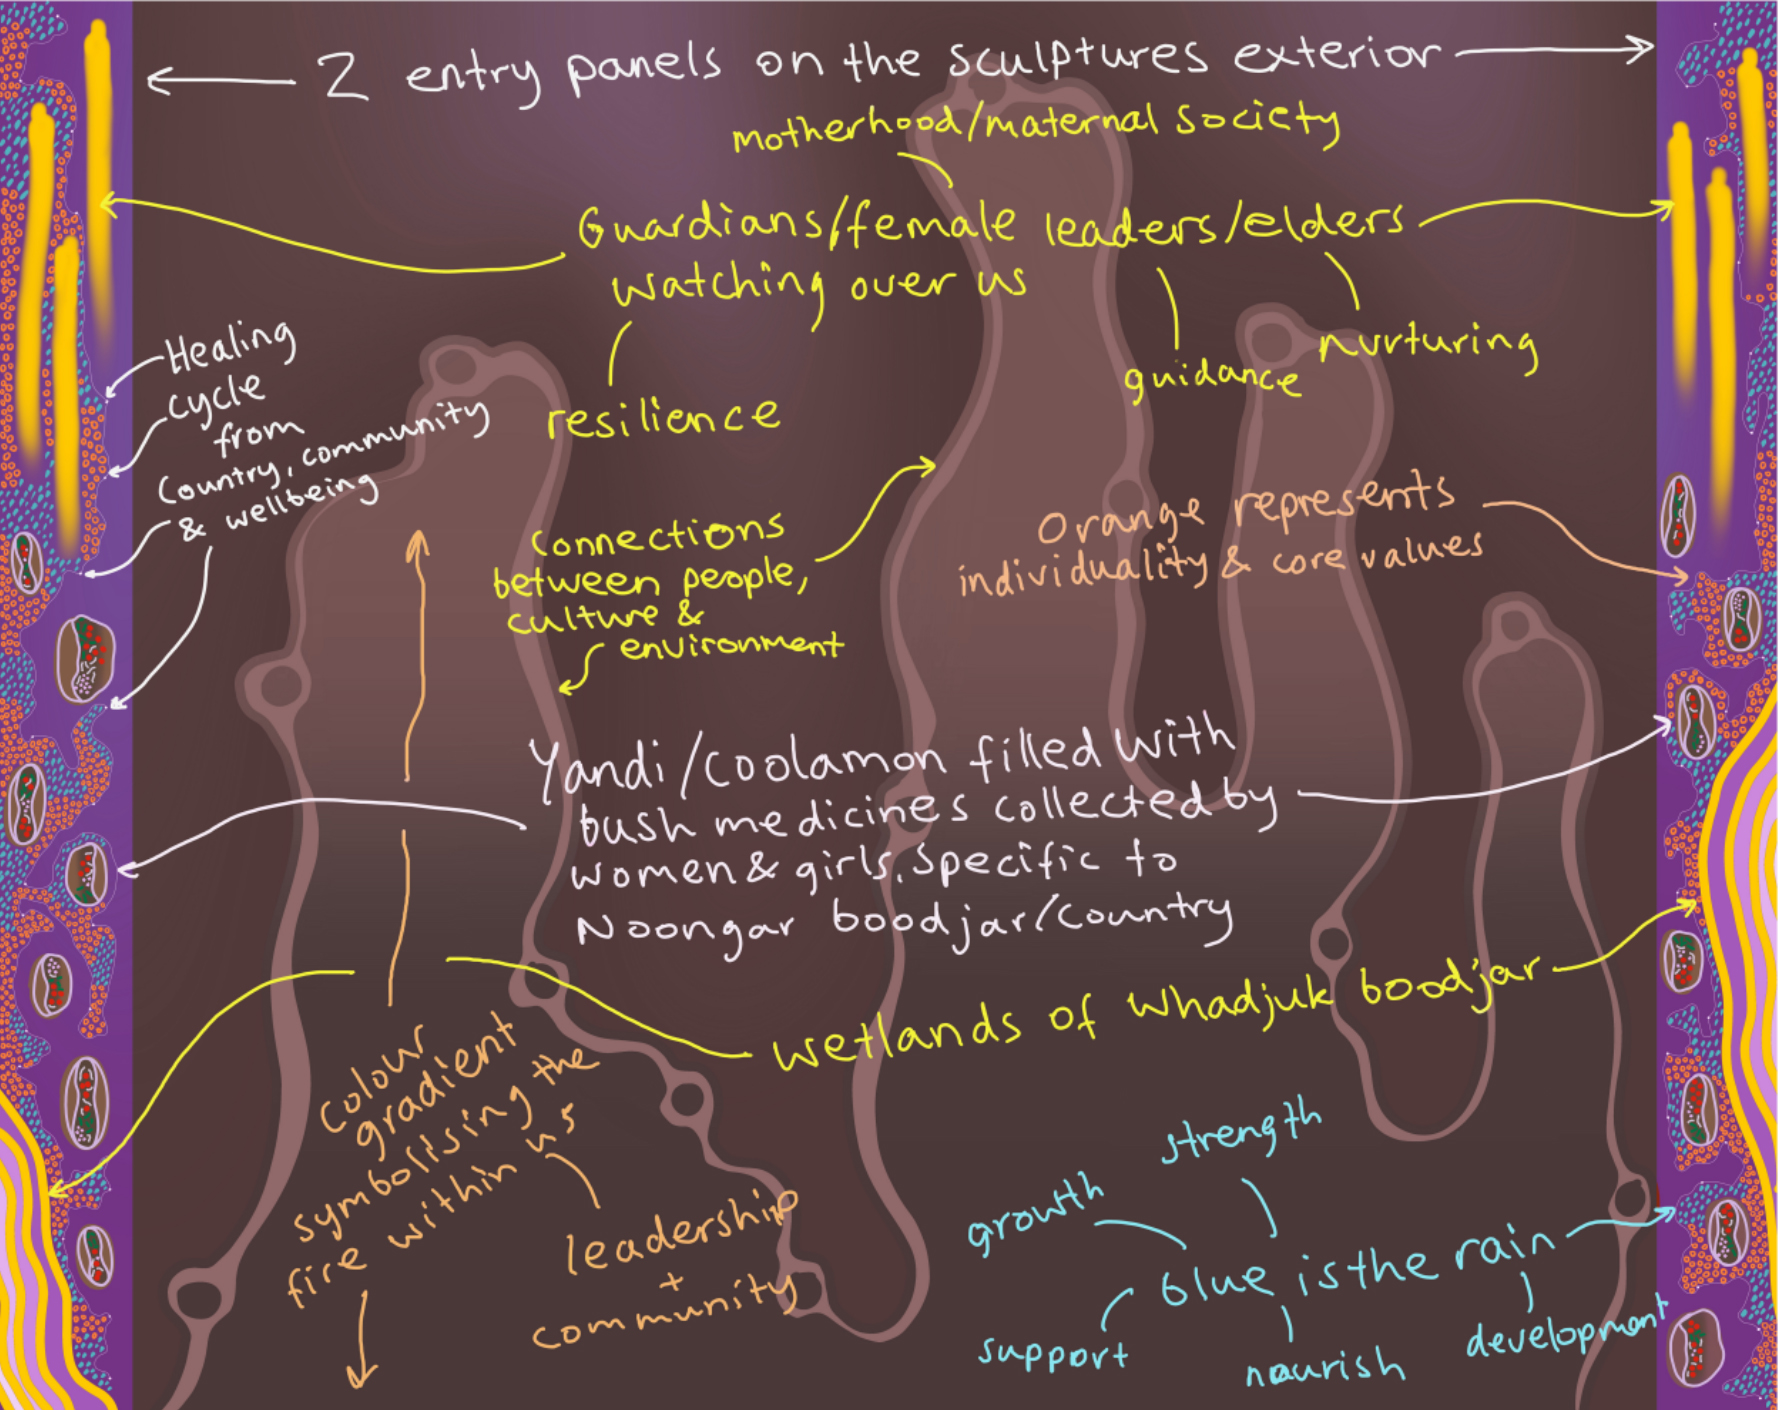 2 entry panels on the sculptures exterior
motherhood/maternal society
Guardians/female leaders/elders
watching over us
resilience
guidance
nurturing
Healing
cycle
from
Country, community
& wellbeing
Connections
between people,
culture &
environment
Orange represents
individuality & core values
Yandi/coolamon filled with
bush medicines collected by
women & girls. Specific to
Noongar boodjar/Country
wetlands of Whadjuk boodjar
colour
gradient
symbolising the
fire within us
leadership
+
community
strength
growth
blue is the rain
support
nourish
development